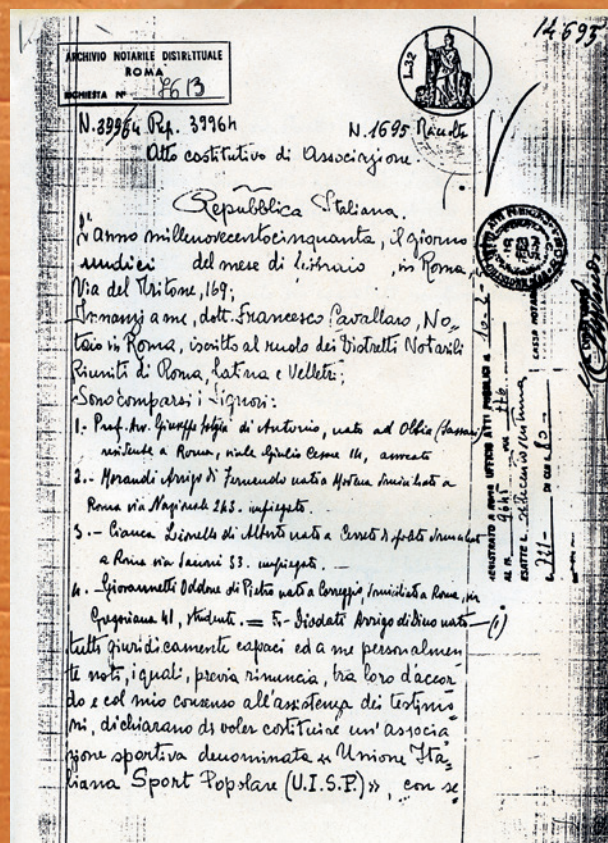 14.693
ARCHIVIO NOTARILE DISTRETTUALE
ROMA
RICHIESTA N° 7613
L. 32
N. 39964 Rep. 39964 N. 1695 Raccolta
Atto costitutivo di Associazione.
Repubblica Italiana.
L'anno millenovecentocinquanta, il giorno
undici del mese di febbraio, in Roma,
Via del Tritone, 169;
Innanzi a me, dott. Francesco Cavallaro, No=
taio in Roma, iscritto al ruolo dei Distretti Notarili
Riuniti di Roma, Latina e Velletri;
Sono comparsi i Signori:
1.- Prof. Avv. Giuseppe di Antonio, nato ad Olbia (Sassari)
residente a Roma, viale Giulio Cesare 14, avvocato
2.- Morandi Arrigo di Fernando nato a Modena domiciliato a
Roma via Nazionale 243. impiegato.
3.- Cianca Lionello di Alberto nato a Cerreto di Spoleto domiciliato
a Roma via 53. impiegato. —
4.- Giovannetti Oddone di Pietro nato a Correggio, domiciliato a Roma, via
Gregoriana 41, studente. = 5.- Diodati Arrigo di Dino nato — (1)
tutti giuridicamente capaci ed a me personalmen
te noti, i quali, previa rinuncia, tra loro d'accor
do e col mio consenso all'assistenza dei testimo
ni, dichiarano di voler costituire un'associa
zione sportiva denominata « Unione Ita=
liana Sport Popolare (U.I.S.P.) », con se
REGISTRATO A ROMA UFFICIO ATTI PUBBLICI
AL N. 9645 VOL.
ESATTE L.
DI CUI
CASSA NOTAR